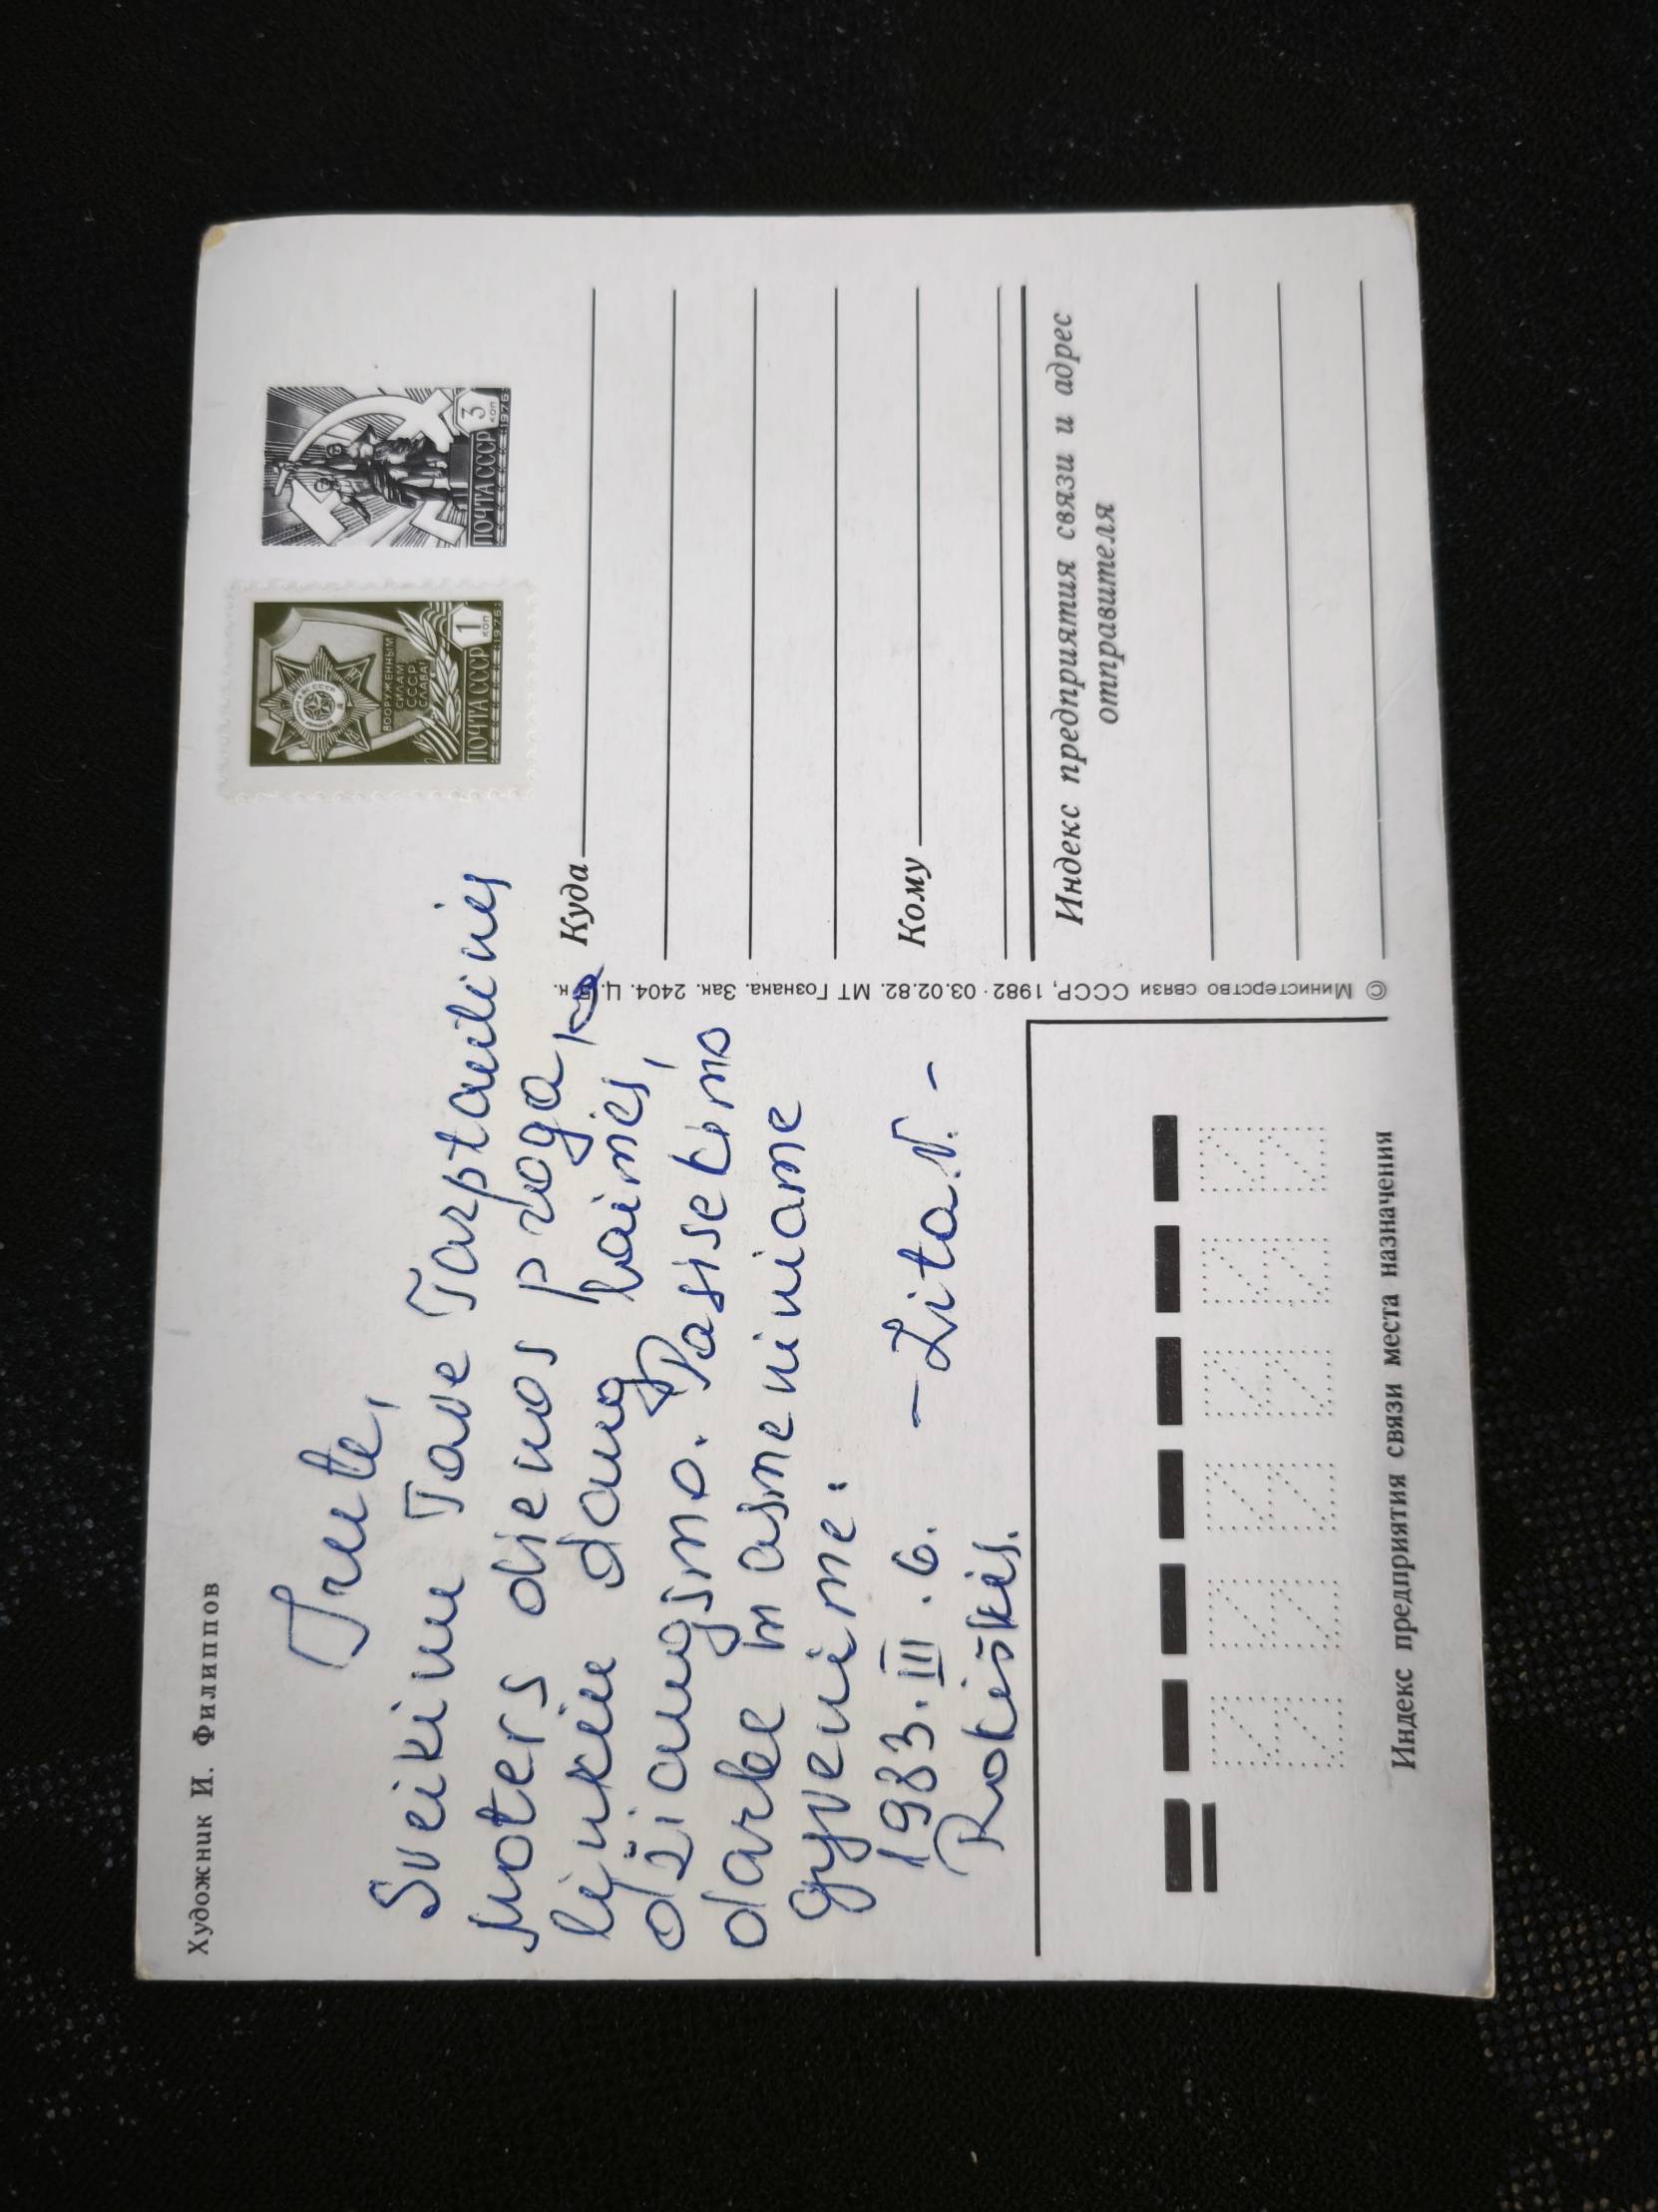 Художник И. Филиппов
Irute,
Sveikinu Tave Tarptautinės
moters dienos proga,
linkiu daug laimės,
džiaugsmo. Pasisekimo
darbe ir asmeniniame
gyvenime.
1983.III.6. —Zita.N.-
Rokiškis.
ВООРУЖЕННЫМ
СИЛАМ
СССР
СЛАВА!
ПОЧТА СССР
1
КОП
1976
ПОЧТА СССР
3
КОП
1976
Куда
Кому
Индекс предприятия связи и адрес
отправителя
© Министерство связи СССР, 1982 · 03.02.82. МТ Гознака. Зак. 2404. Ц. к.
Индекс предприятия связи места назначения